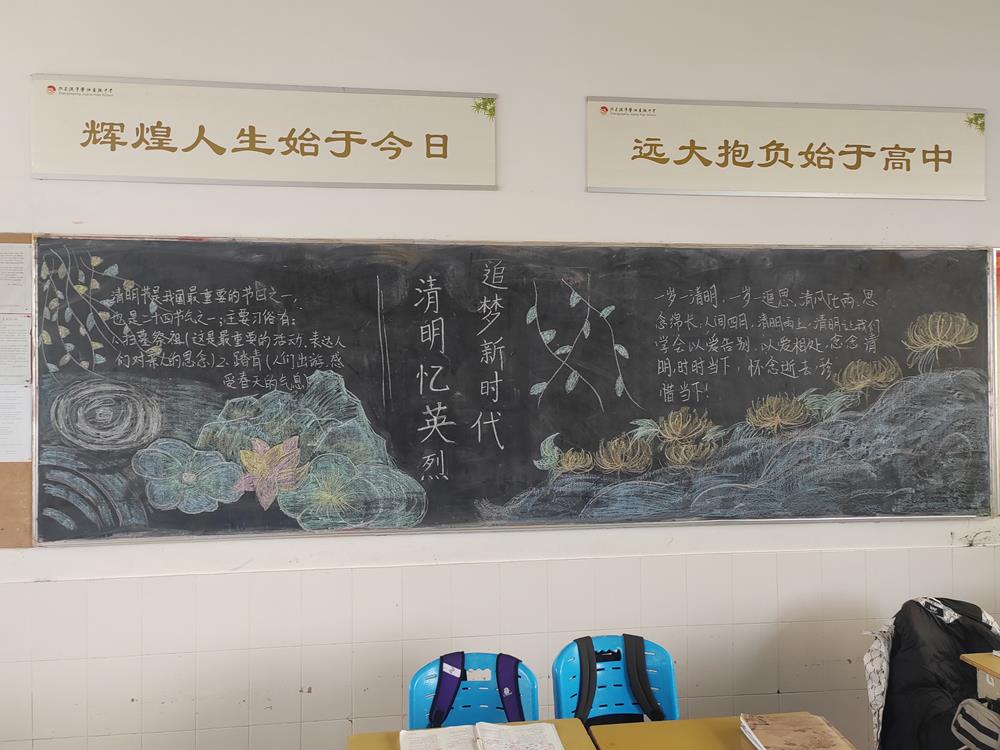 辉煌人生始于今日
远大抱负始于高中
清明节是我国最重要的节日之一,
也是二十四节气之一;主要习俗有:
1、扫墓祭祖(这是最重要的活动,表达人
们对亲人的思念)2、踏青(人们出游,感
受春天的气息)
清明忆英烈
追梦新时代
一岁一清明,一岁一追思,清风吐雨,思
念绵长,人间四月,清明雨上,清明让我们
学会以爱告别,以爱相处,念念清
明,时时当下,怀念逝去,珍
惜当下!